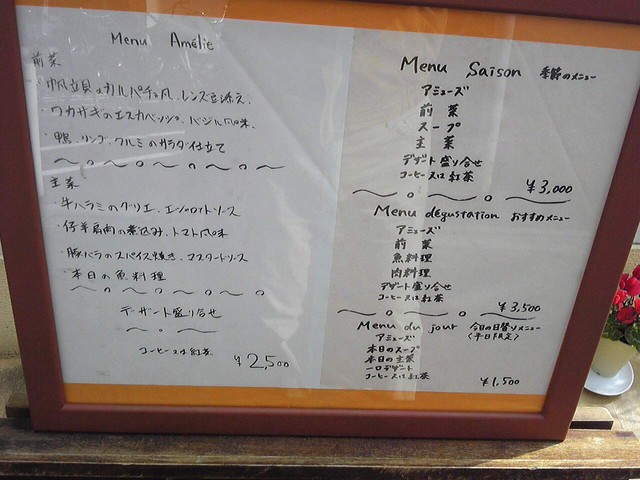 Menu Amélie
前菜
・帆立貝のカルパチョ風、レンズ豆添え
・ワカサギのエスカベッシュ、バジル風味
・鴨、リンゴ、クルミのサラダ仕立て
主菜
・牛ハラミのグリエ、エシャロットソース
・仔羊肩肉の煮込み、トマト風味
・豚バラのスパイス焼き、マスタードソース
・本日の魚料理
デザート盛り合せ
コーヒー又は紅茶
¥2,500
Menu Saison 季節のメニュー
アミューズ
前菜
スープ
主菜
デザート盛り合せ
コーヒー又は紅茶
¥3,000
Menu dégustation おすすめメニュー
アミューズ
前菜
魚料理
肉料理
デザート盛り合せ
コーヒー又は紅茶
¥3,500
Menu du jour 今日の日替りメニュー
〈平日限定〉
アミューズ
本日のスープ
本日の主菜
一口デザート
コーヒー又は紅茶
¥1,500